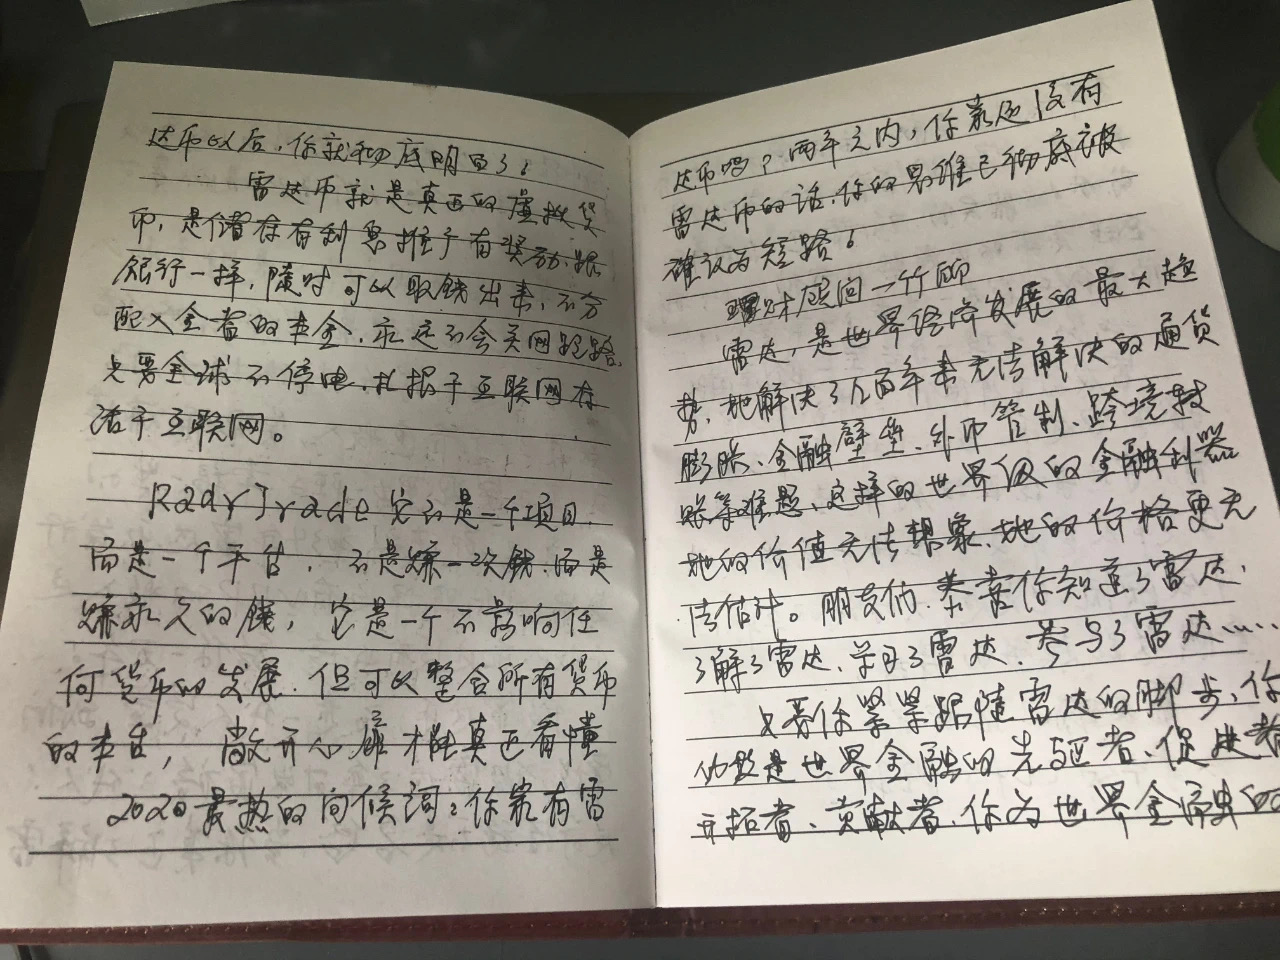 达币以后,你就彻底明白了!
雷达币就是真正的虚拟货
币,是储存有利息推广有奖励,跟
银行一样,随时可以取钱出来,不分
配入金者的本金,永远不会关网跑路,
只要全球不停电,扎根于互联网存
活于互联网。
RadrTrade它不是一个项目,
而是一个平台,不是赚一次钱,而是
赚永久的钱,它是一个不影响任
何货币的发展,但可以整合所有货币
的平台,敞开心扉才能真正看懂
2020最热的问候词:你家有雷
达币吗?两年之内,你家还没有
雷达币的话,你的思维已彻底被
确认为短路!
理财顾问一竹聊
雷达,是世界经济发展的最大趋
势,她解决了几百年来无法解决的通货
膨胀、金融壁垒、外币管制、跨境转
账等难题、这样的世界级的金融利器
她的价值无法想象,她的价格更无
法估计。朋友们,恭喜你知道了雷达,
了解了雷达,学习了雷达,参与了雷达……
只要你紧紧跟随雷达的脚步,你
们就是世界金融的先驱者、促进者
开拓者、贡献者,你为世界金融的